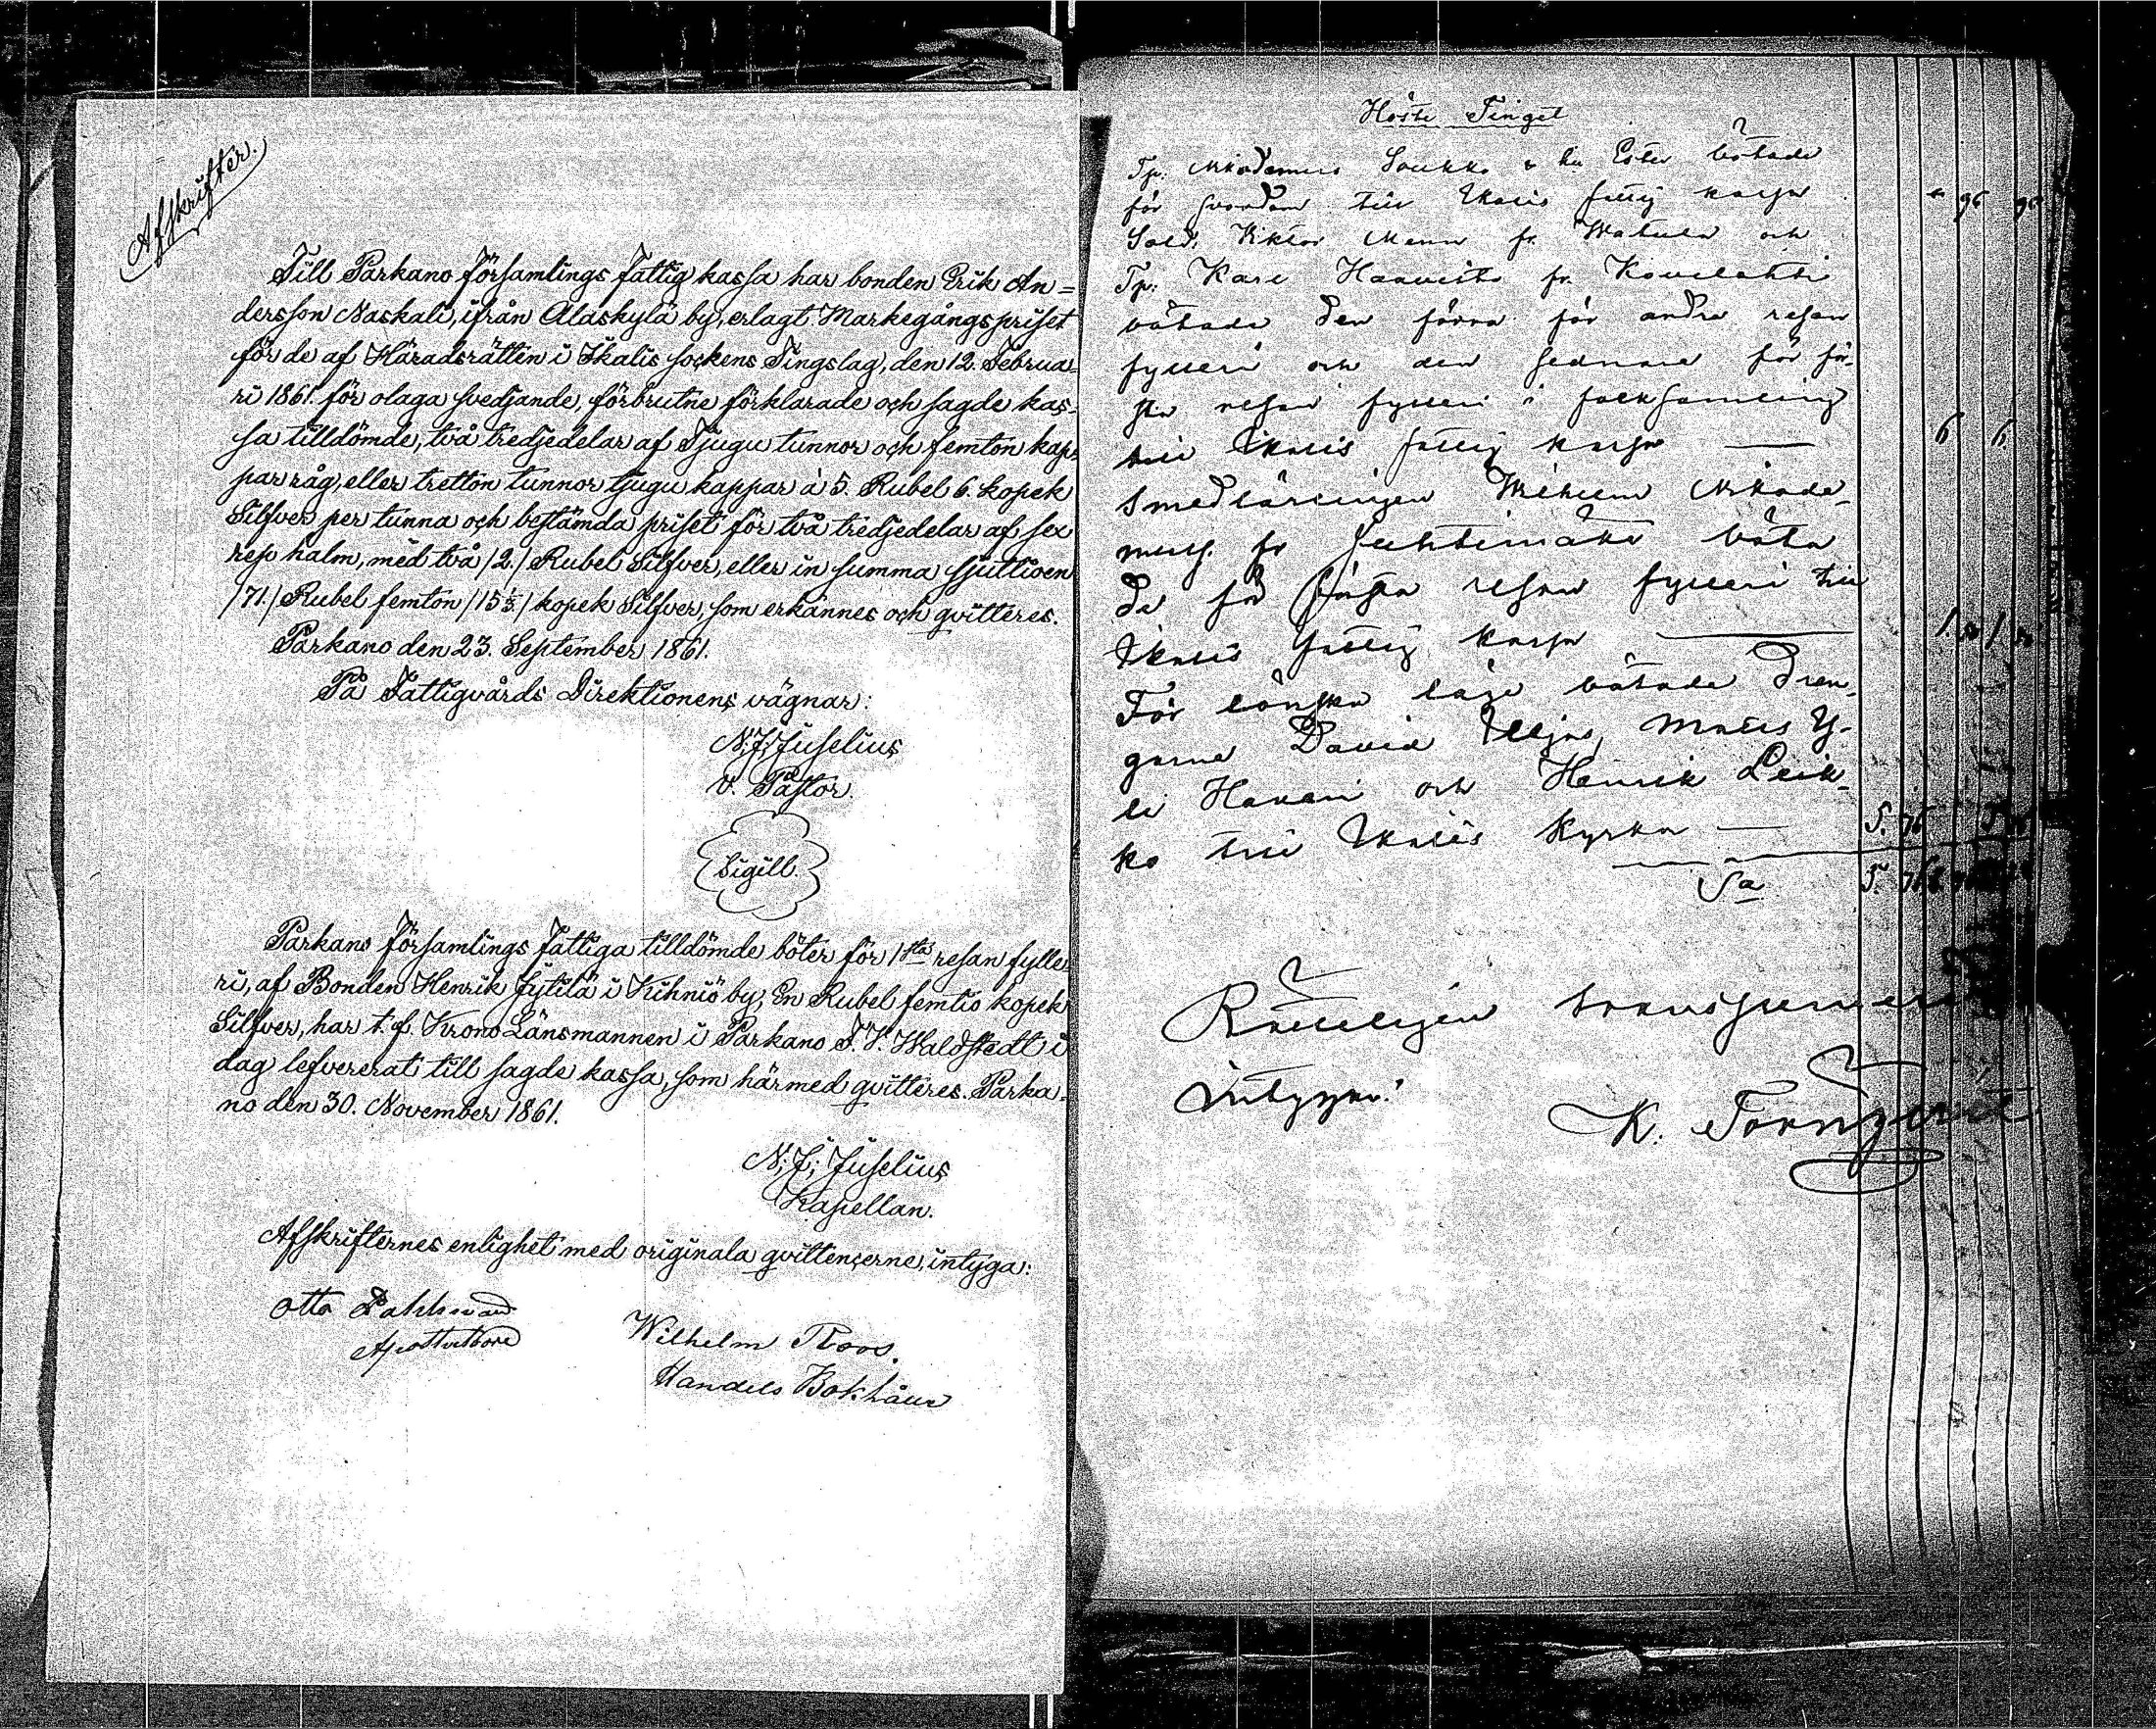 Afskrifter.
Till Parkano Församlings Fattig kassa har bonden Erik An=
dersson Naskali, ifrån Alaskylä by, erlagt Markegångspriset
för de af Häradsrätten i Ikalis sockens Tingslag, den 12. Februa-
ri 1861. för olaga svedjande, förbrutne förklarade och sagde kas-
sa tilldömde, två tredjedelar af Tjugu tunnor och femton kap-
par råg, eller tretton tunnor tjugu kappar à 5. Rubel 6. kopek
Silfver per tunna och bestämda priset för två tredjedelar af sex
resp halm, med två /2./ Rubel Silfver, eller in summa sjuttioen
/71./ Rubel femton /15 1/3./ kopek Silfver, som erkännes och qvitteres.
Parkano den 23. September 1861.
På Fattigvårds Direktionens vägnar:
N; J; Juselius
v. Pastor.
Sigill.
Parkano Församlings Fattiga tilldömde böter för 1sta resan fylle-
ri, af Bonden Henrik Jytilä i Kihniö by, En Rubel femtio kopek
Silfver, har t. f. Krono Länsmannen i Parkano F. V. Waldstedt i
dag lefvererat till sagde kassa, som härmed qvitteres. Parka-
no den 30. November 1861.
N; J; Juselius
Kapellan.
Afskrifternes enlighet med originala qvittencerne, intyga:
Otto
Wilhelm Roos.
Handels Bokhåll
Höste Tinget
Tp. Nikodemus Soukko & hu Ester bötade
för hvardom till Ikalis fattig kassa " 96 96
Sold. Viktor Menn fr. Watula och
Tp. Karl Haavisto fr. Kovelahti
bötade den förra för andra resan
fylleri och den sednare för för-
sta resan fylleri i folksamling
till Ikalis fattig kassa — 6 6
Smedlärlingen Wilhelm Nikode-
muss. fr böta
de för första resan fylleri till
Ikalis fattig kassa — 1. 50 1 50
För lönska läge bötade Dren-
garne David Matts Y-
li Haveri och Henrik Leik-
ko till Ikalis Kyrka — 5. 76
Sa 5. 76
Riktligen
intygar:
K.